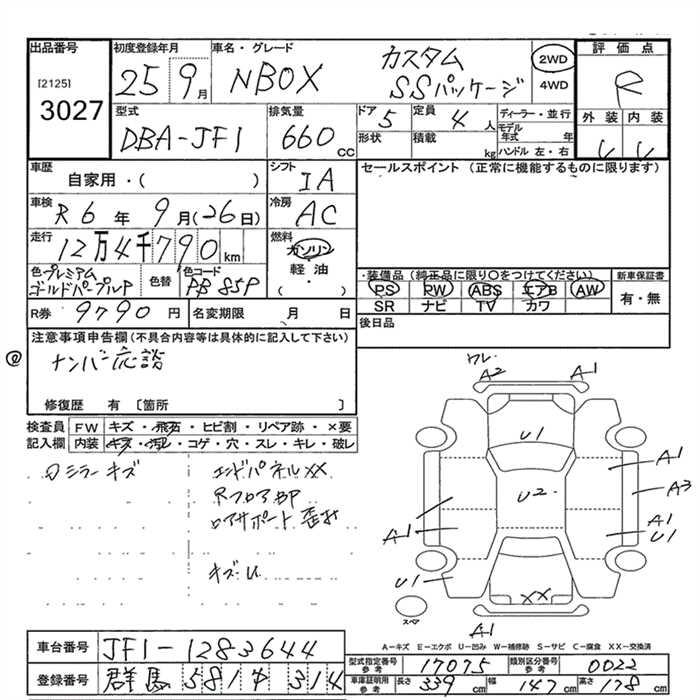 出品番号
[2125]
3027
初度登録年月
25 9月
車名・グレード
NBOX カスタム
SSパッケージ
2WD
4WD
評価点
R
外装 内装
型式
DBA-JF1
排気量
660 CC
ドア 5
形状
定員 4 人
積載 kg
ディーラー・並行
モデル年式 年
ハンドル 左・右
車歴
自家用・( )
シフト
IA
セールスポイント (正常に機能するものに限ります)
車検
R6年 9月(26日)
冷房
AC
走行
12万4千790km
燃料
ガソリン
軽油
( )
色 プレミアム
ゴールドパープルP
色替
色コード
PB85P
装備品 (純正品に限り○をつけてください)
PS RW ABS エアB AW
SR ナビ TV カワ
新車保証書
有・無
R券 9790円
名変期限 月 日
後日品
注意事項申告欄(不具合内容等は具体的に記入して下さい)
ナンバー応談
修復歴 有 〔箇所 〕
検査員記入欄
FW キズ・飛石・ヒビ割・リペア跡・×要
内装 キズ・汚レ・コゲ・穴・スレ・キレ・破レ
ミラーキズ
エンドパネルXX
RフロアBP
ロアサポート歪み
キズ・U
ワレ
A2 A1
U1
A1
U2
A3
A1
A1
U1
U1
XX
スペア
A1
A-キズ E-エクボ U-凹み W-補修跡 S-サビ C-腐食 XX-交換済
車台番号 JF1-1283644
登録番号 群馬 581 サ 314
型式指定番号 参考 17075
類別区分番号 参考 0022
車庫証明用 参考 長さ 339cm 幅 147cm 高さ 178cm